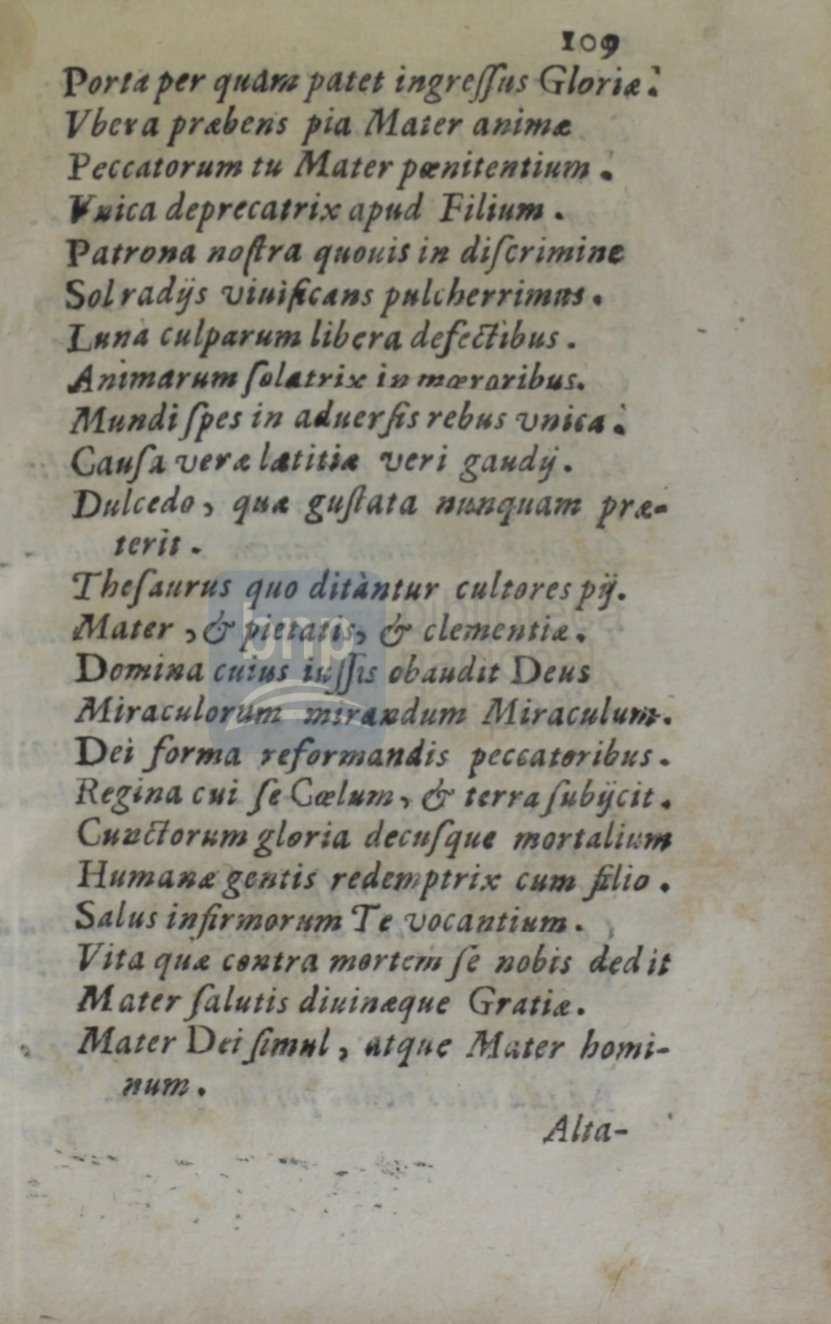 109
Porta per quàm patet ingreſſus Gloriæ.
Vbera præbens pia Mater animæ
Peccatorum tu Mater pœnitentium.
Vnica deprecatrix apud Filium.
Patrona noſtra quouis in diſcrimine
Sol radijs viuificans pulcherrimus.
Luna culparum libera defectibus.
Animarum ſolatrix in mœroribus.
Mundi ſpes in aduerſis rebus vnica.
Cauſa veræ lætitiæ veri gaudij.
Dulcedo, quæ guſtata nunquam præ-
terit.
Theſaurus quo ditàntur cultores pij.
Mater, & pietatis, & clementiæ.
Domina cuius iuſſis obaudit Deus
Miraculorum mirandum Miraculum.
Dei forma reformandis peccatoribus.
Regina cui ſe Cœlum, & terra ſubijcit.
Cunctorum gloria decuſque mortalium
Humanæ gentis redemptrix cum filio.
Salus infirmorum Te vocantium.
Vita quæ contra mortem ſe nobis dedit
Mater ſalutis diuinæque Gratiæ.
Mater Dei ſimul, atque Mater homi-
num.
Alta-
bnp